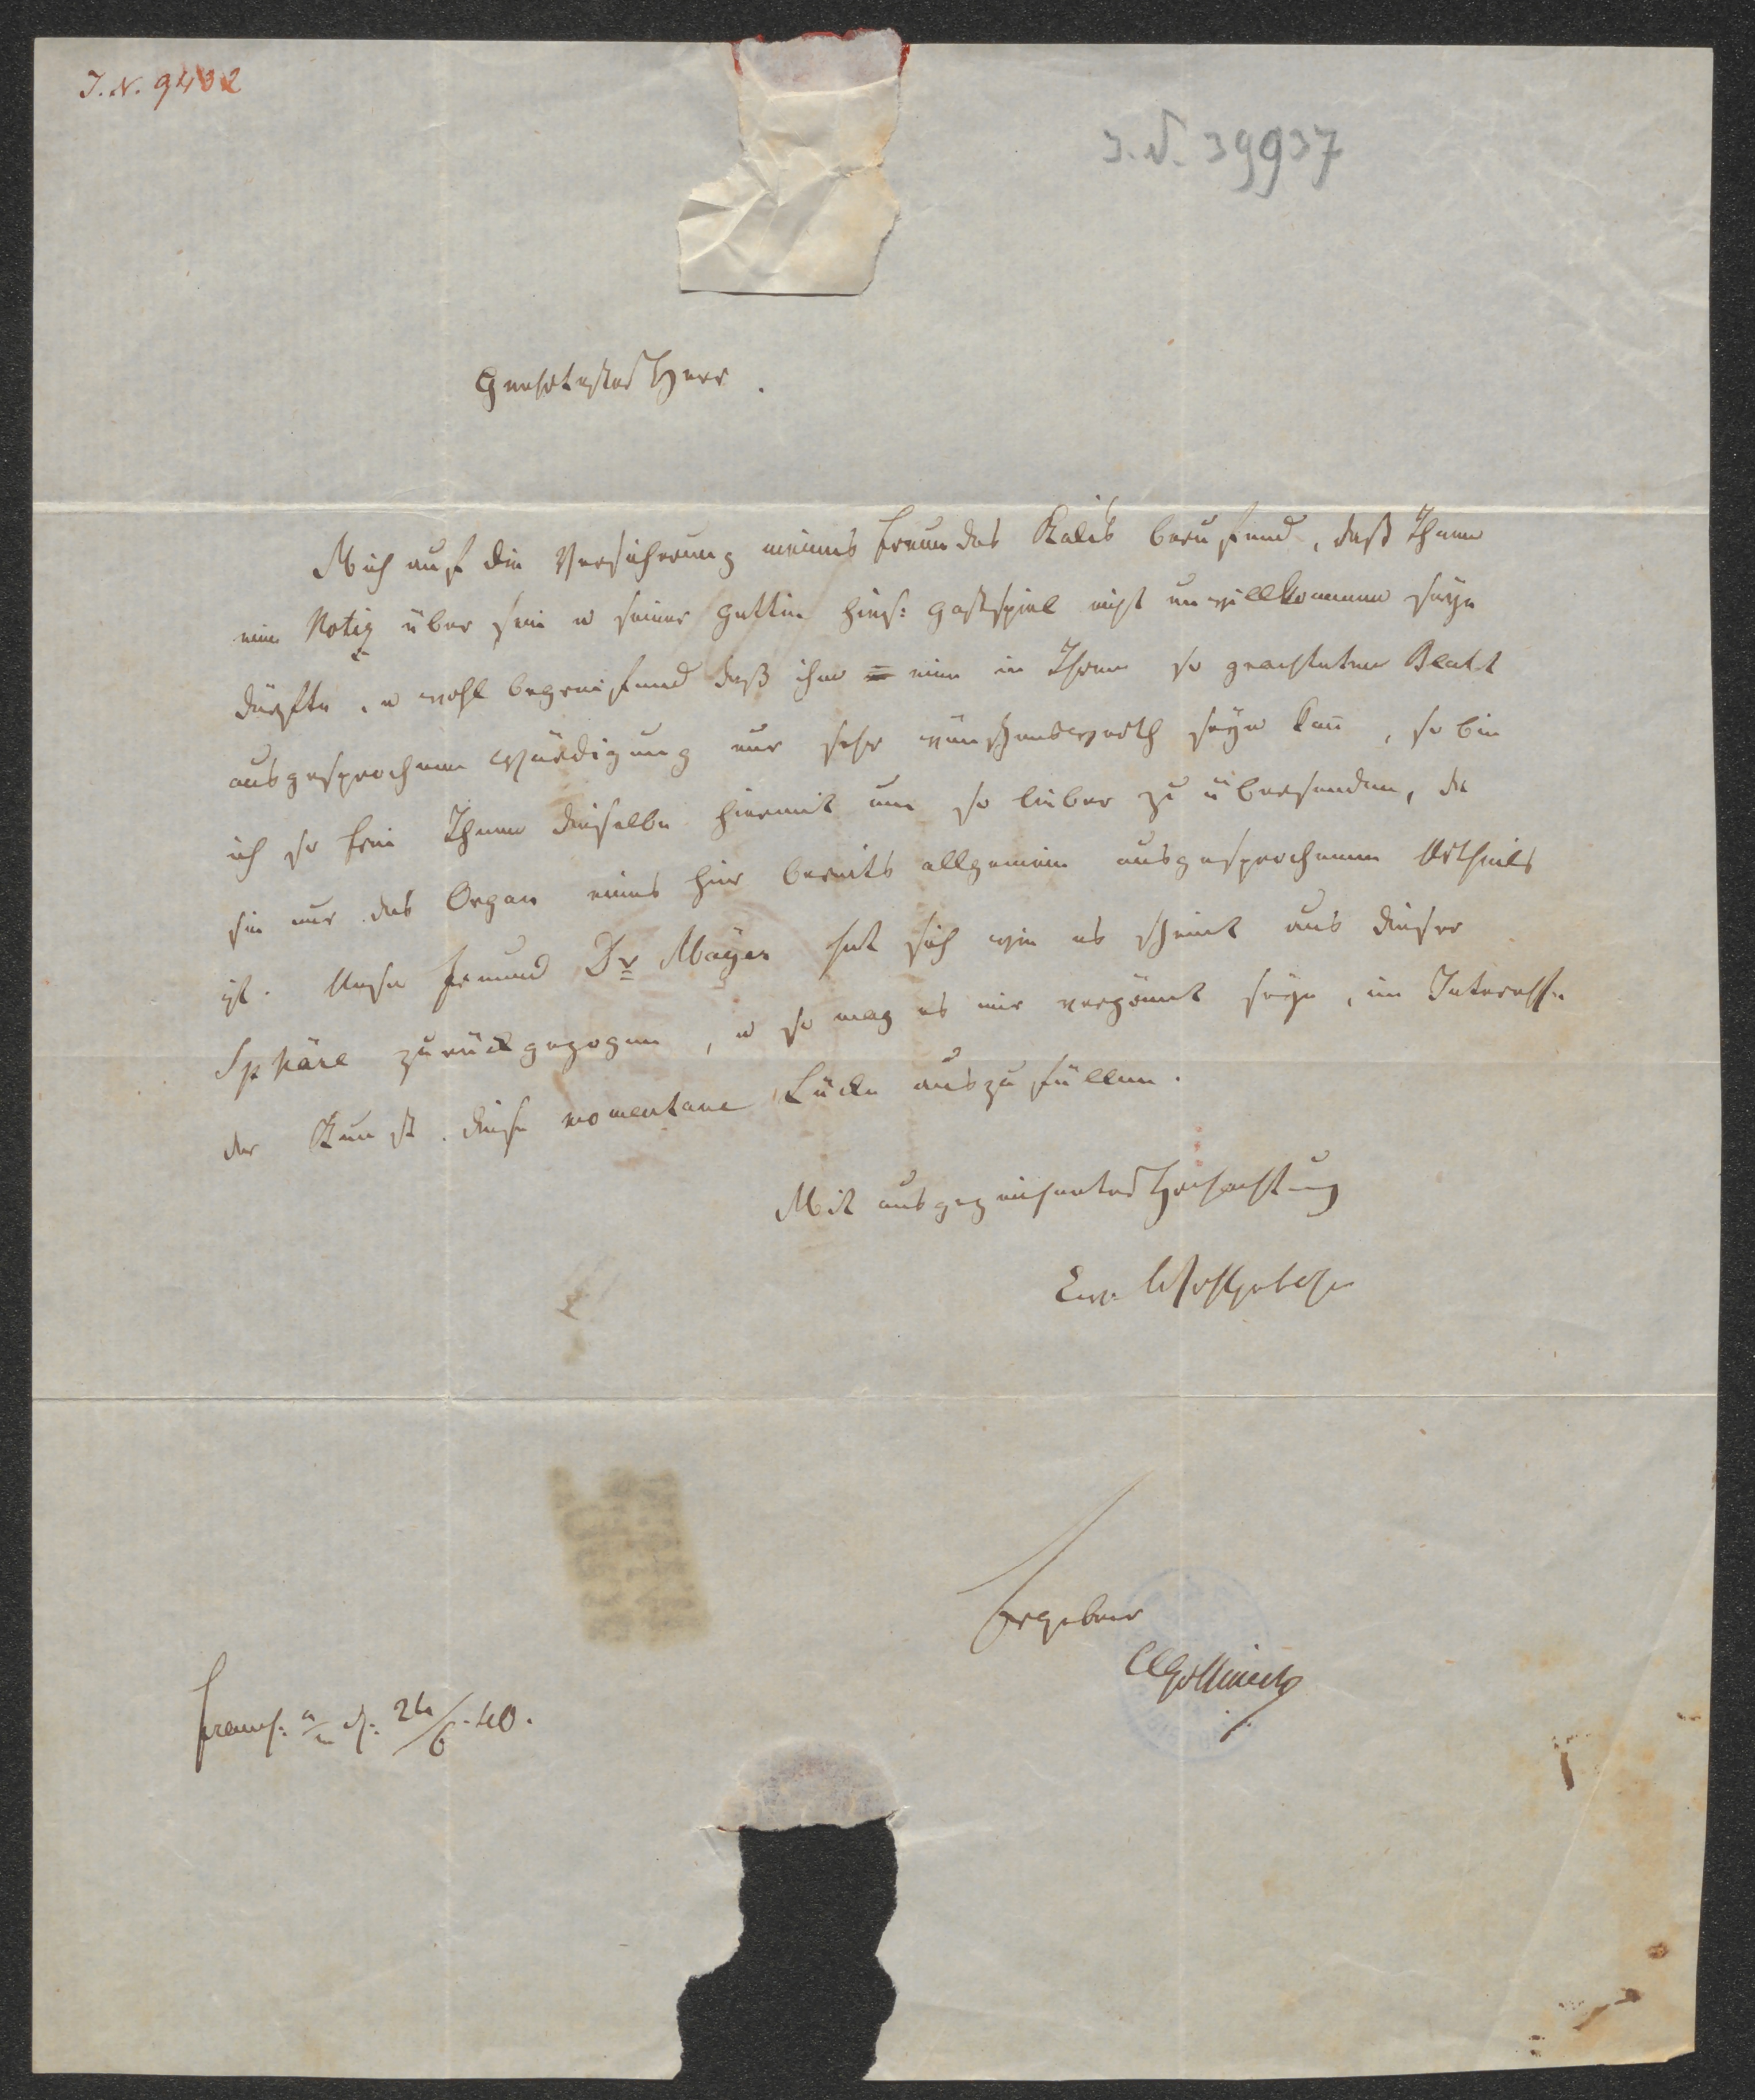 J. N. 9432
J. N. 39937
Geehrtester Herr.
Mich auf die Versicherung meines Freundes Kalis berufend, daß Ihnen
eine Notiz über sein u seiner Gattin hies: Gastspiel nicht unwillkommen seyn
dürfte, u wohl begreifend daß ihm eine in Ihrem so geachteten Blatt
ausgesprochene Würdigung nur sehr wünschenswerth seyn kañ, so bin
ich so frei Ihnen dieselbe hiermit um so lieber zu übersenden, da
sie nur das Organ eines hier bereits allgemein ausgesprochenen Urtheils
ist. Unser Freund Dr Mayer hat sich wie es scheint aus dieser
Sphäre zurückgezogen, u so mag es mir vergönnt seyn, im Interesse
der Kunst diese momentane Lücke auszufüllen.
Mit ausgezeichneter Hochachtung
Euer
Ergebener
CGollmick
Frankf. a/m d. 24/6. 40.